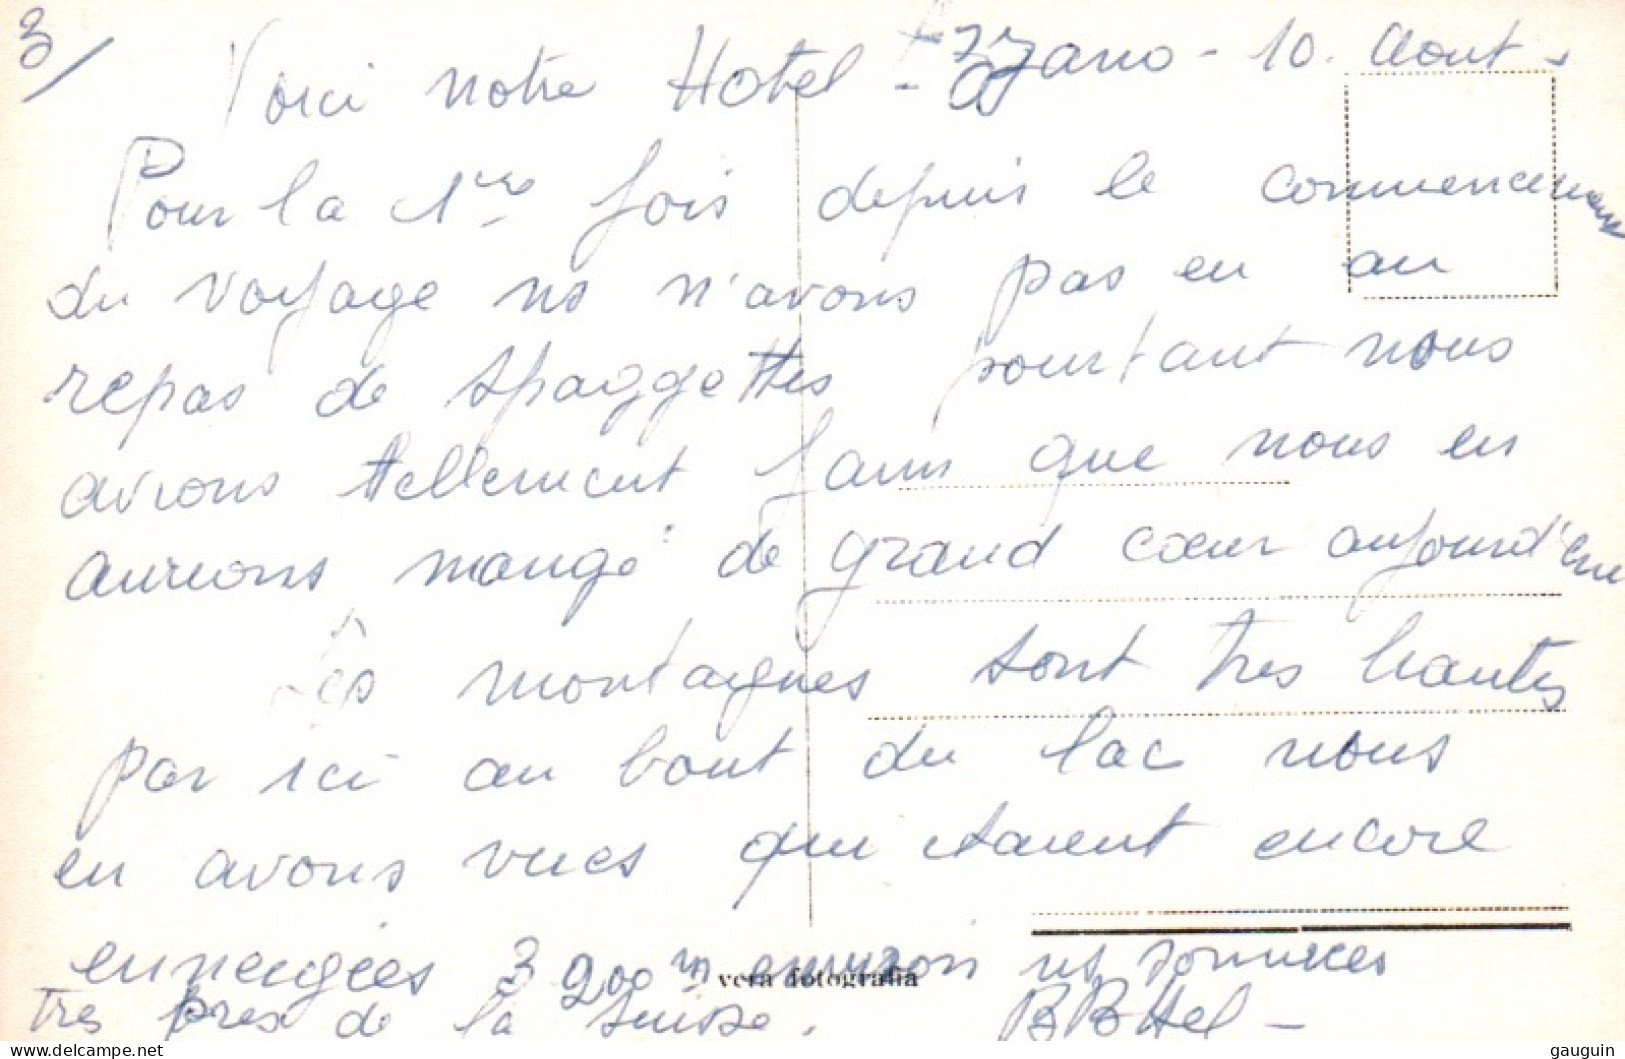 3/
Voici notre Hotel - - 10. Aout -
Pour la 1ère fois depuis le commencement
du voyage ns n'avons pas eu au
repas de spaggettes pourtant nous
avions tellement faim que nous en
aurions mangé de grand cœur aujourd'hui
Les montagnes sont tres hautes
par ici au bout du lac nous
en avons vues qui etaient encore
enneigées 3 200 m environ ns sommes
vera fotografia
tres pres de la suisse.
gauguin - www.delcampe.net